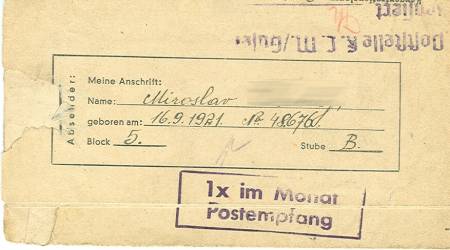 Poststelle K. L. M./Gusen
Absender:
Meine Anschrift:
Name: Miroslav
geboren am: 16.9.1921. No 48676
Block 5. Stube B.
1x im Monat
Postempfang